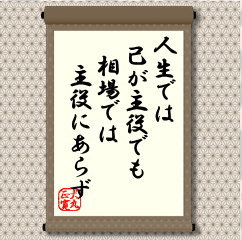 人生では
己が主役でも
相場では
主役にあらず